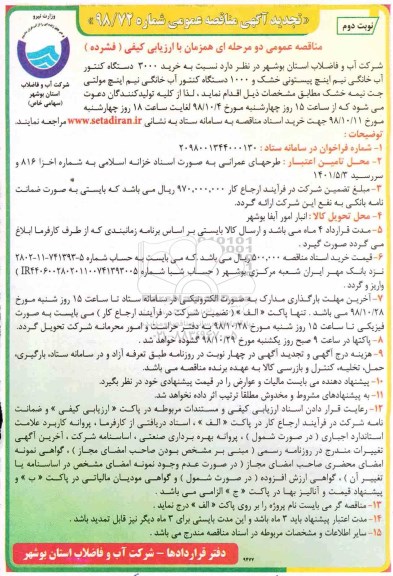 «تجدید آگهی مناقصه عمومی شماره ۹۸/۷۲»
نوبت دوم
وزارت نیرو
شرکت آب و فاضلاب استان بوشهر
(سهامی خاص)
مناقصه عمومی دو مرحله ای همزمان با ارزیابی کیفی ( فشرده )
شرکت آب و فاضلاب استان بوشهر در نظر دارد نسبت به خرید ۳۰۰۰ دستگاه کنتور
آب خانگی نیم اینچ پیستونی خشک و ۱۰۰۰ دستگاه کنتور آب خانگی نیم اینچ مولتی
جت نیمه خشک مطابق مشخصات ذیل اقدام نماید، لذا از کلیه تولیدکنندگان دعوت
می شود که از ساعت ۱۵ روز چهارشنبه مورخ ۹۸/۱۰/۴ لغایت ساعت ۱۸ روز چهارشنبه
مورخ ۹۸/۱۰/۱۱ جهت خرید اسناد مناقصه به سامانه ستاد به نشانی www.setadiran.ir مراجعه نمایند.
توضیحات :
۱- شماره فراخوان در سامانه ستاد : ۲۰۹۸۰۰۱۳۴۴۰۰۰۱۳۰
۲- محل تامین اعتبار : طرحهای عمرانی به صورت اسناد خزانه اسلامی به شماره اخزا ۸۱۶ و
سررسید ۱۴۰۱/۵/۳
۳- مبلغ تضمین شرکت در فرآیند ارجاع کار ۹۷۰,۰۰۰,۰۰۰ ریال می باشد که بایستی به صورت ضمانت
نامه بانکی به نفع این شرکت ارائه گردد.
۴- محل تحویل کالا : انبار امور آبفا بوشهر
۵- مدت قرارداد ۴ ماه می باشد و ارسال کالا بایستی بر اساس برنامه زمانبندی که از طرف کارفرما ابلاغ
می گردد صورت گیرد .
۶- قیمت خرید اسناد مناقصه ۵۰۰,۰۰۰ ریال می باشد .که می بایست به حساب شماره ۵-۷۴۱۳۹۳-۱۱-۲۸۰۲
نزد بانک مهر ایران شعبه مرکزی بوشهر ( حساب شبا شماره IR۴۴۰۶۰۰۲۸۰۲۰۱۱۰۰۷۴۱۳۹۳۰۰۵)
واریز و گردد .
۷- آخرین مهلت بارگذاری مدارک به صورت الکترونیکی در سامانه ستاد تا ساعت ۱۵ روز شنبه مورخ
۹۸/۱۰/۲۸ می باشد . تنها پاکت « الف » ( تضمین شرکت در فرآیند ارجاع کار ) می بایست به صورت
فیزیکی تا ساعت ۱۵ روز شنبه مورخ ۹۸/۱۰/۲۸ به دفتر حراست و امور محرمانه شرکت تحویل گردد.
۸- پاکتها در ساعت ۹ صبح روز یکشنبه مورخ ۹۸/۱۰/۲۹ گشوده خواهد شد .
۹- هزینه درج آگهی و تجدید آگهی در چهار نوبت در روزنامه طبق تعرفه آزاد و در سامانه ستاد، بارگیری،
حمل، تخلیه، کنترل و بازرسی کالا به عهده برنده مناقصه می باشد.
۱۰- پیشنهاد دهنده می بایست مالیات و عوارض را در قیمت پیشنهادی خود در نظر بگیرد.
۱۱- به پیشنهادهای مشروط و مخدوش مطلقا ترتیب اثر داده نخواهد شد.
۱۲- رعایت قرار دادن اسناد ارزیابی کیفی و مستندات مربوطه در پاکت « ارزیابی کیفی » و ضمانت
نامه شرکت در فرآیند ارجاع کار در پاکت « الف » ، اسناد دریافتی از کارفرما ، پروانه کاربرد علامت
استاندارد اجباری ( در صورت شمول ) ، پروانه بهره برداری صنعتی ، اساسنامه شرکت ، آخرین آگهی
تغییرات مندرج در روزنامه رسمی ( مبنی بر مشخص بودن صاحب امضای مجاز ) ، گواهی نمونه
امضای محضری صاحب امضای مجاز ( در صورت عدم وجود نمونه امضای مشخص در اساسنامه یا
تغییر آن ) ، گواهی ارزش افزوده ( در صورت شمول ) و گواهی مودیان مالیاتی در پاکت « ب » و
پیشنهاد قیمت و آنالیز بها در پاکت « ج » الزامی می باشد .
۱۳- مناقصه گر می بایست نام پروژه را بر روی پاکت « الف » درج نماید .
۱۴- مدت اعتبار پیشنهاد باید ۳ ماه باشد و این مدت بایستی برای ۳ ماه دیگر نیز قابل تمدید باشد .
۱۵- سایر اطلاعات و مشخصات مربوطه در اسناد مناقصه مندرج می باشد
دفتر قراردادها – شرکت آب و فاضلاب استان بوشهر
۹۶۷۷